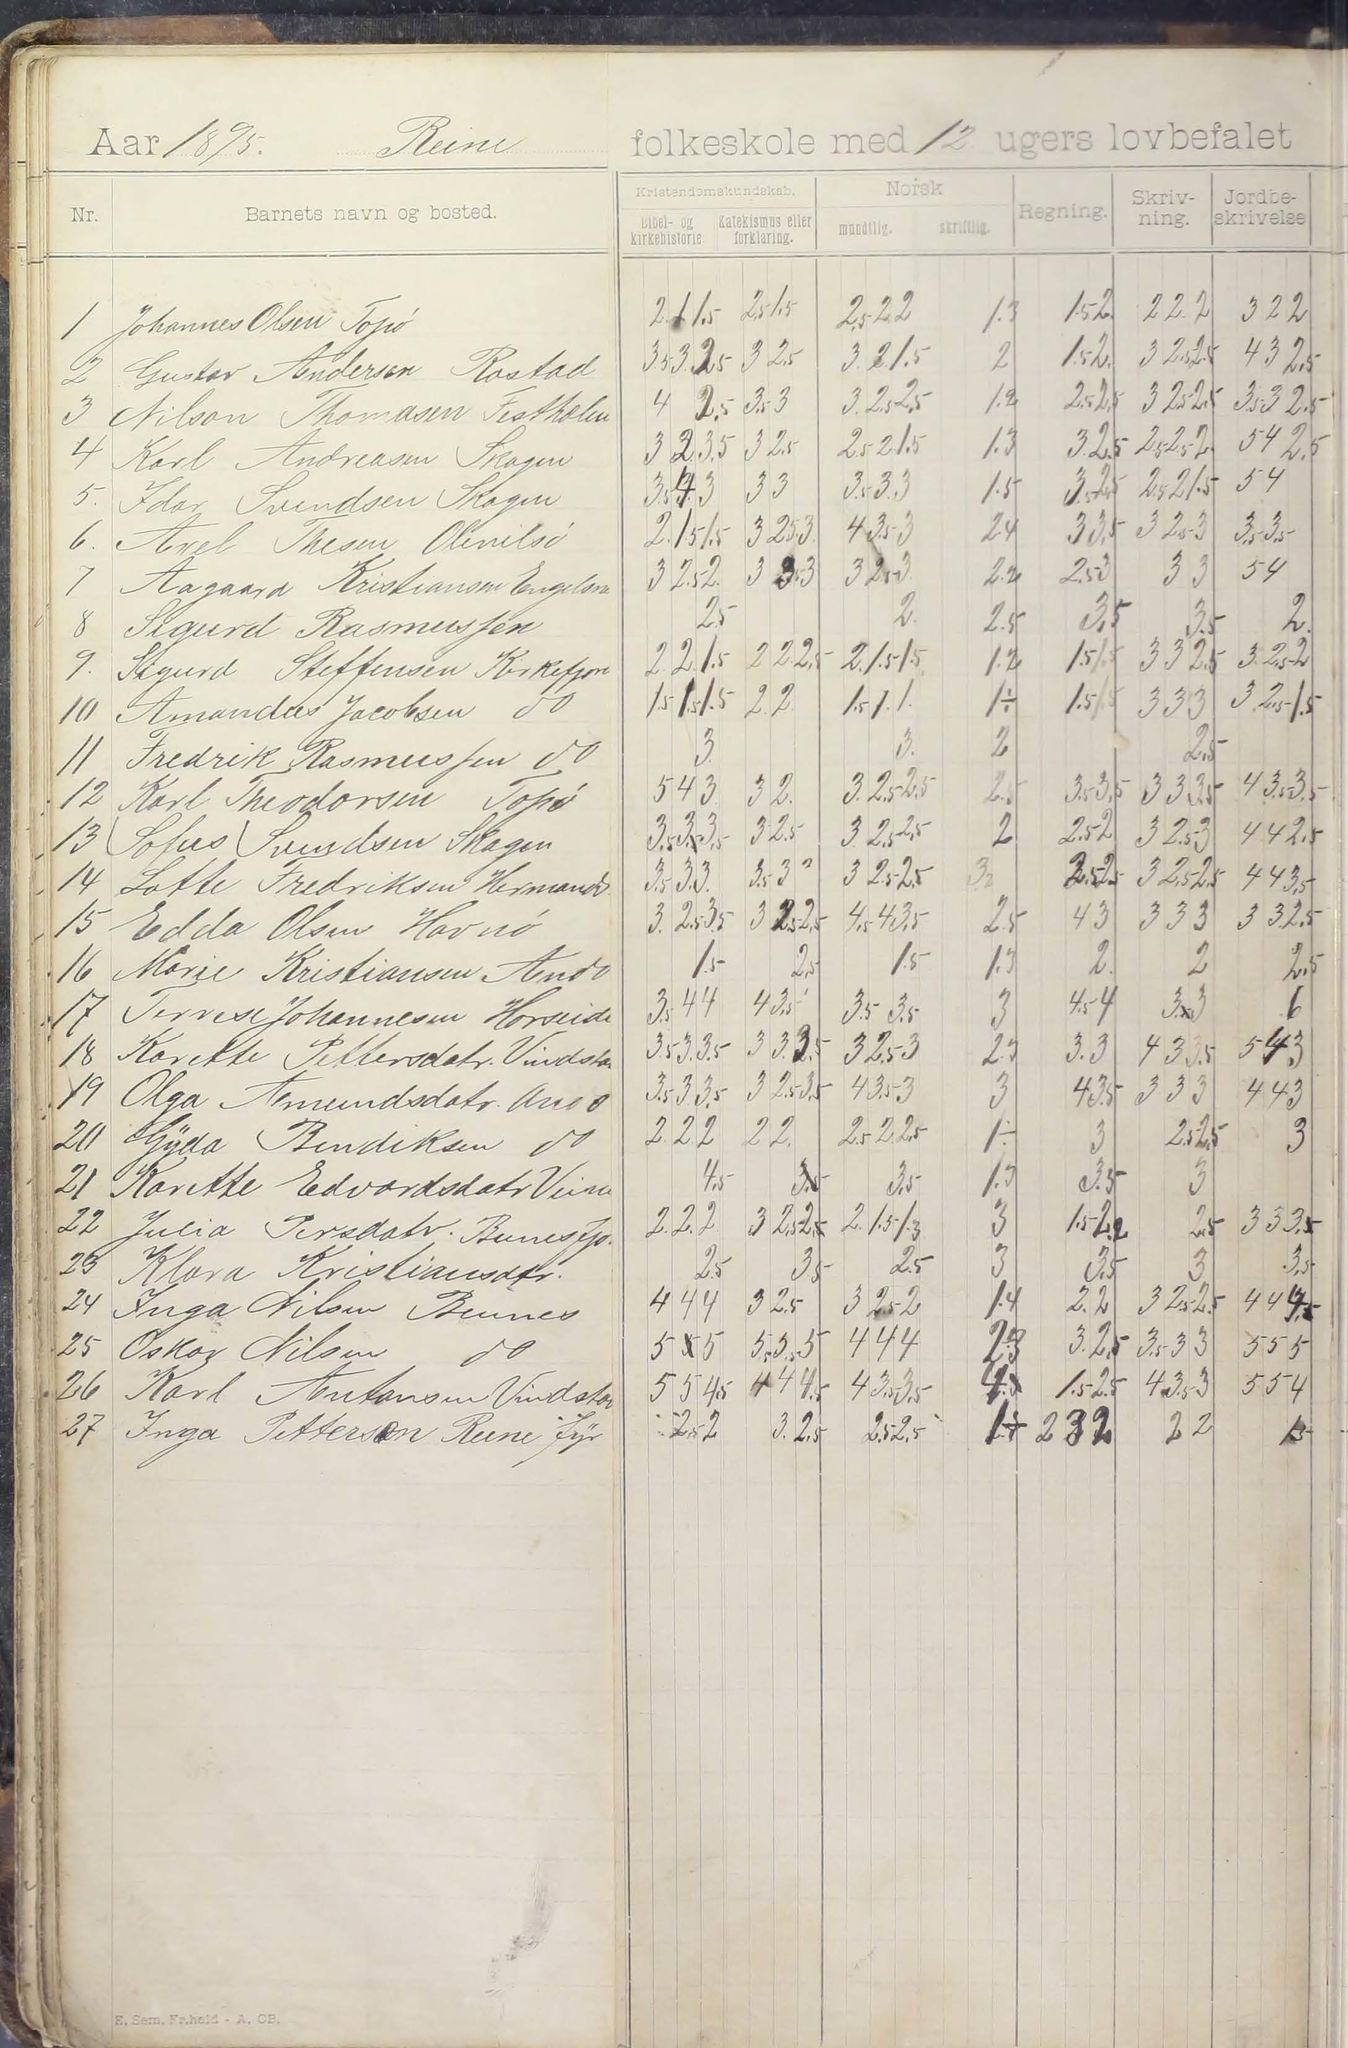 Aar 1895. Reine folkeskole med 12 ugers lovbefalet
Nr. Barnets navn og bosted. Kristendomskundskab. Norsk Regning. Skriv-ning. Jordbe-skrivelse
Bibel- og kirkehistorie. Katekismus eller forklaring. mundtlig. skriftlig.
1 Johannes Olsen Topø 2.1 1.5 2.5 1.5 2.5 2 2 1.3 1.5 2 2 2 2 3 2 2
2 Gustav Andersen Rostad 3.5 3 2.5 3 2.5 3. 2 1.5 2 1.5 2. 3 2.5 2.5 4 3 2.5
3 Nilson Thomasen Festhælen 4 2.5 3.5 3 3. 2.5 2.5 1.2 2.5 2.5 3 2.5 2.5 3.5 3 2.5
4 Karl Andreasen Skagen 3 2 3.5 3 2.5 2.5 2 1.5 1.3 3 2.5 2.5 2.5 2 5 4 2.5
5. Idar Svendsen Skagen 3.5 4 3 3 3 3.5 3 3 1.5 3.5 2.5 2.5 2 1.5 5 4
6. Axel Thesen Olenilsø 2. 1.5 1.5 3 2.5 3 4 3.5 3 2.4 3 3.5 3 2.5 3 3.5 3.5
7 Aagaard Kristiansen 3 2.5 2. 3 3.5 3 3 2.5 3. 2.2 2.5 3 3 3 5 4
8 Sigurd Rasmussen 2.5 2. 2.5 3.5 3.5 2.
9. Sigurd Steffensen Kirkefjor 2. 2 1.5 2 2 2.5 2. 1.5 1.5 1.2 1.5 1.5 3 3 2.5 3. 2.5 2
10 Amandus Jacobsen do 1.5 1.5 1.5 2 2 1.5 1. 1. 1÷ 1.5 1.5 3 3 3 3. 2.5 1.5
11 Fredrik Rasmussen do 3. 3. 2 2.5
12 Karl Theodorsen Topø 5 4 3 3 2. 3. 2.5 2.5 2.5 3.5 3.5 3 3 3.5 4 3.5 3.5
13 Sofus Svendsen Skagen 3.5 3.5 3.5 3 2.5 3 2.5 2.5 2 2.5 2 3 2.5 3 4 4 2.5
14 Lotte Fredriksen 3.5 3 3. 3.5 3 3 2.5 2.5 2.5 2.5 3 2.5 2.5 4 4 3.5
15 Edda Olsen Havnø 3. 2.5 3.5 3 2.5 2.5 4.5 4 3.5 2.5 4 3 3 3 3 3 3 2.5
16 Marie Kristiansen 1.5 2.5 1.5 1.3 2. 2 2.5
17 Johannesen Horseide 3.5 4 4 4 3.5 3.5 3.5 3 4.5 4 6
18 Karette Pettersdatr. Vindsta 3.5 3 3.5 3 3 3.5 3 2.5 3 2.3 3.3 4 3 3.5 5 4 3
19 Olga Amundsdatr. 3.5 3 3.5 3 2.5 3.5 4 3.5 3 3 4 3.5 3 3 3 4 4 3
20 Gyda Bendiksen do 2 2 2 2 2. 2.5 2 2.5 1÷ 3 2.5 2.5 3
21 Karette Edvardsdatr 4.5 3.5 1.3 3.5 3
22 Julia Persdatr. Bunesfjo. 2. 2. 2 3 2.5 2.5 2. 1.5 1.3 3 1.5 2. 2.5 3 3 3.5
23 Klara Kristiansdtr. 2.5 3.5 2.5 3 3.5 3 3.5
24 Inga Nilsen Bunnes 4 4 4 3 2.5 3 2.5 2 1.4 2 2 3 2.5 2.5 4 4
25 Oskar Nilsen do 5 5 5 5.5 5 4 4 4 3. 2.5 3.5 3 3 5 5 5
26 Karl Antonsen Vindsta 5 5 4.5 4 4 4.5 4 3.5 3.5 1.5 2.5 4 3.5 3 5 5 4
27 Inga Petterson Reine fyr 2.5 2 3. 2.5 2.5 2.5 2 3 2 2 2
E. Sem. Fr.hald - A. OB.